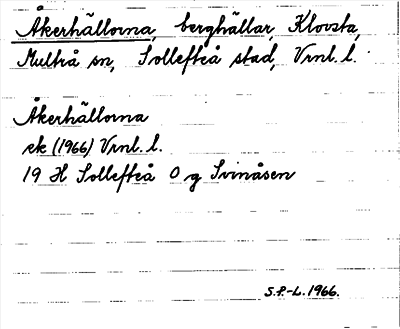 Åkerhällorna, berghällar, Klovsta,
Multrå sn, Sollefteå stad, Vrnl. l.
Åkerhällorna
ek (1966) Vrnl. l.
19 H Sollefteå 0 g Svinåsen
S.P-L. 1966.